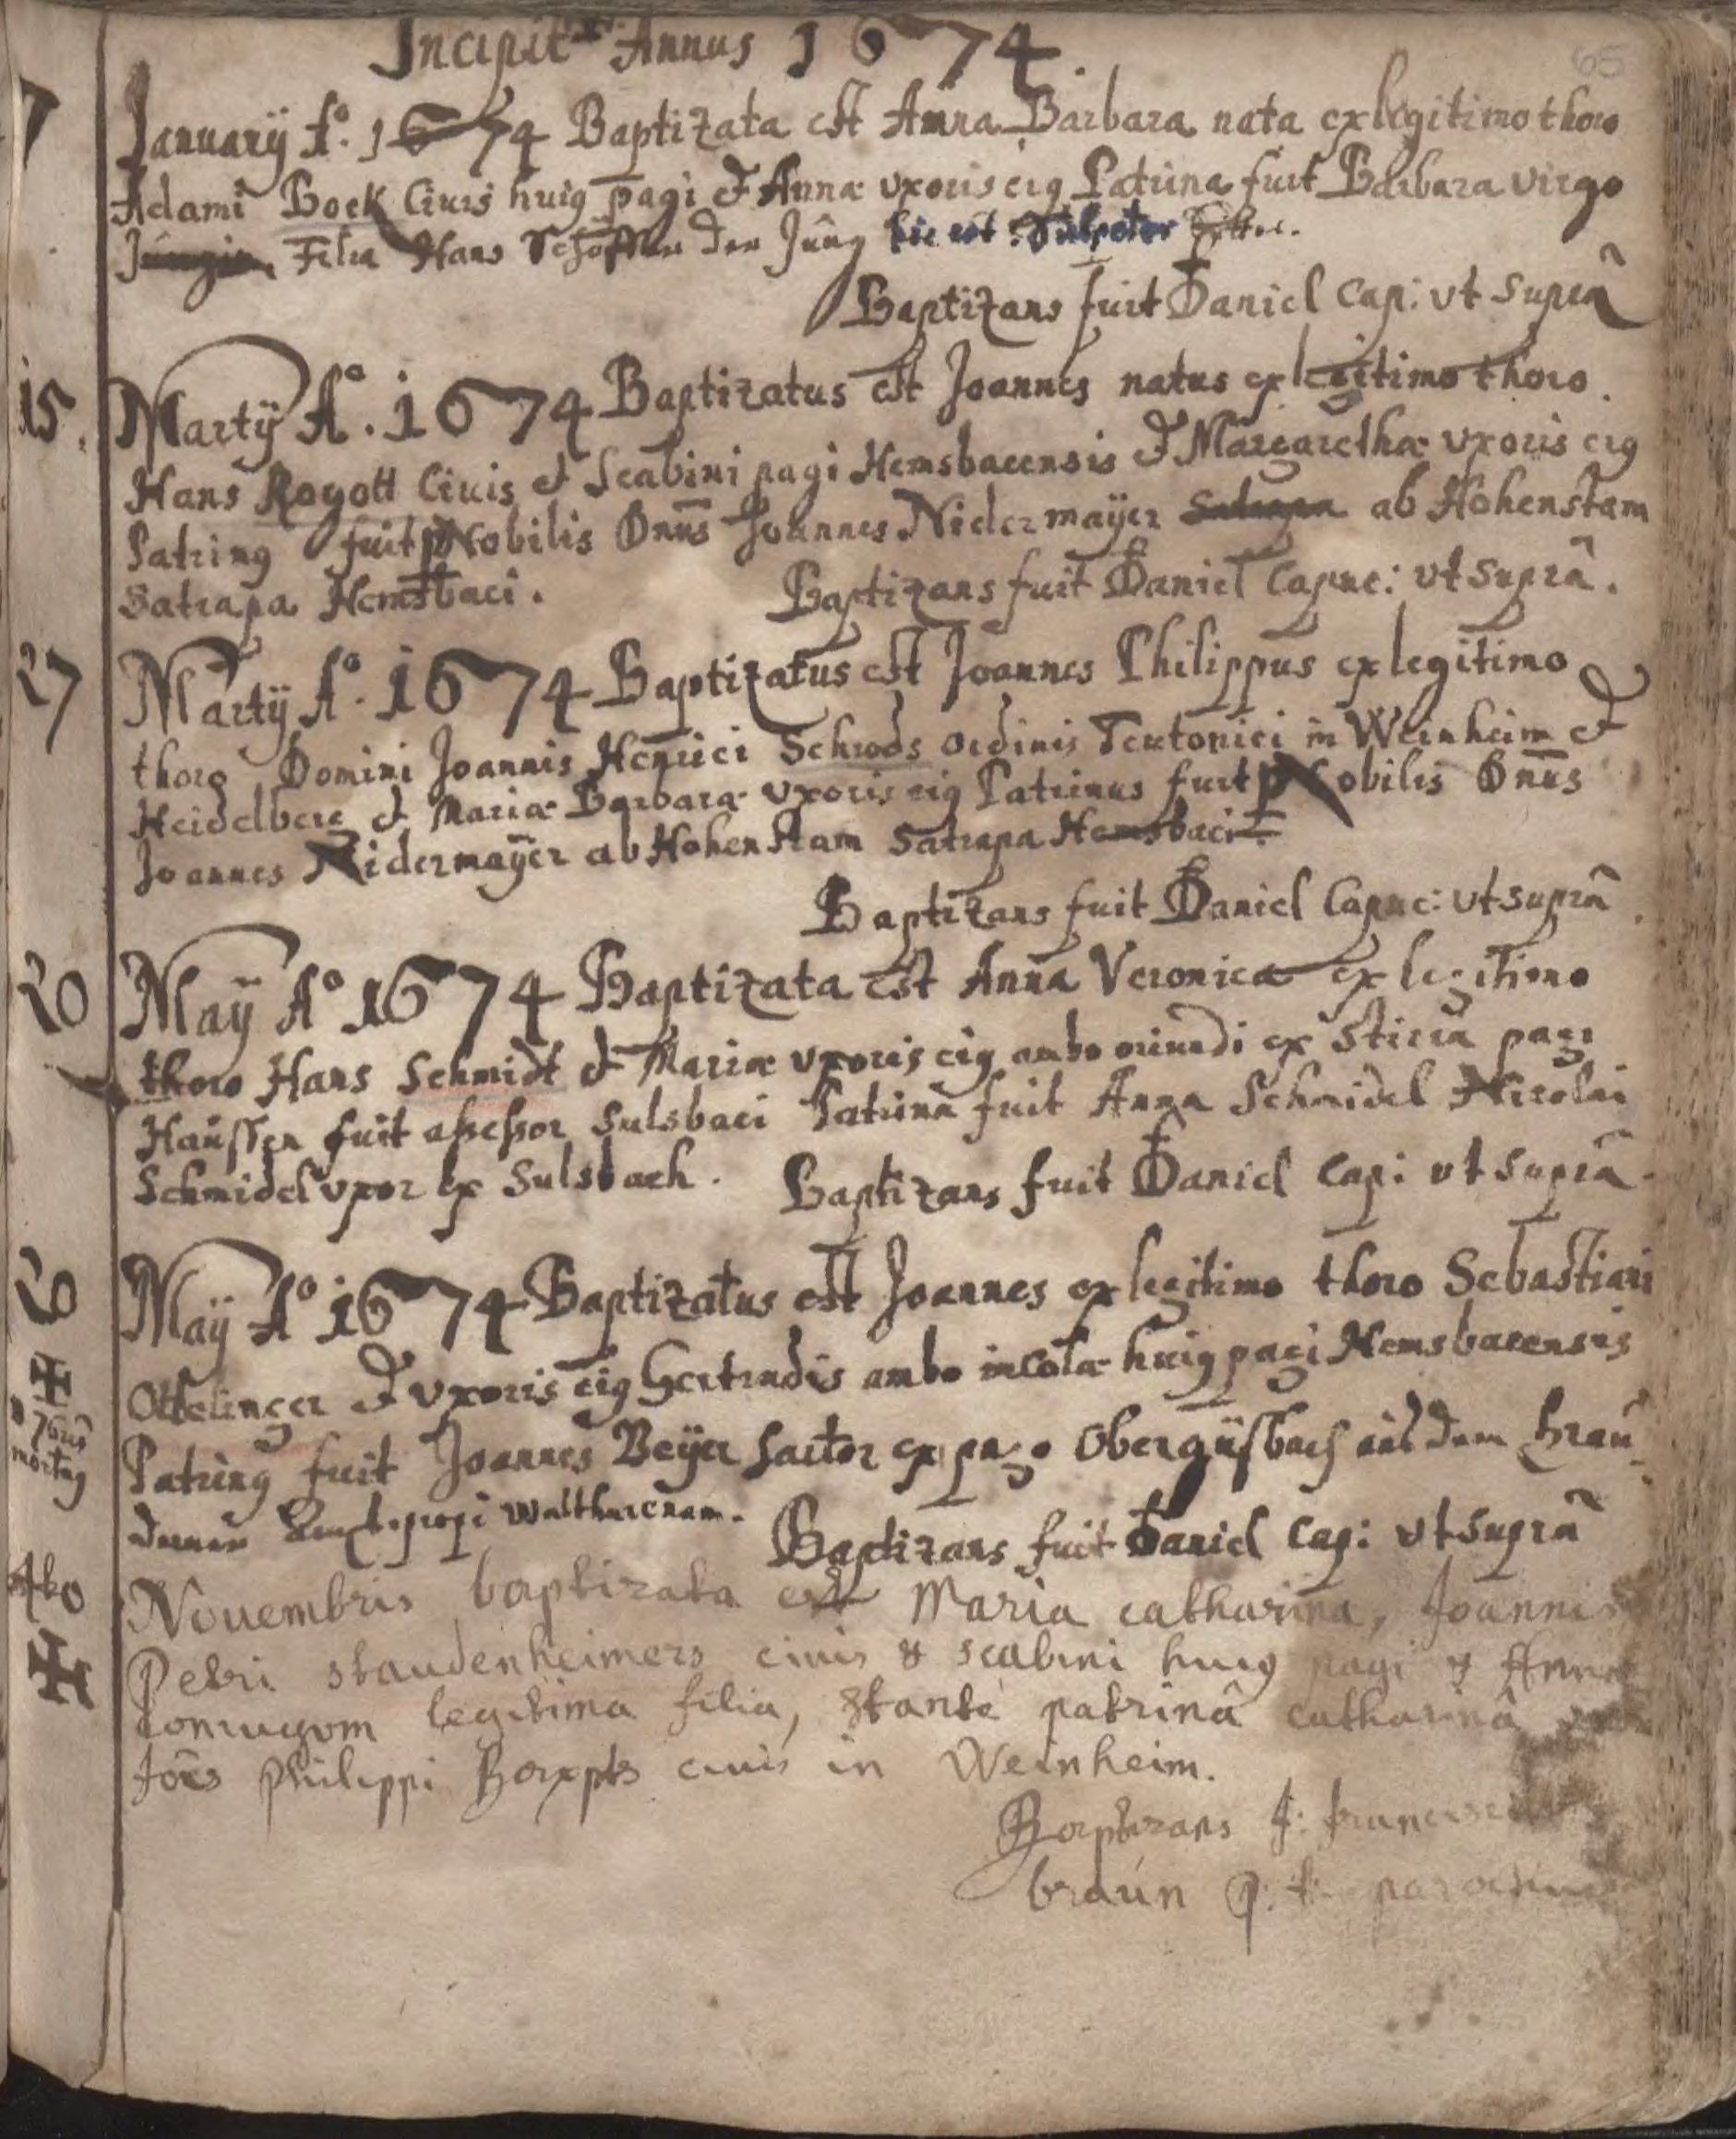 Incipit Annus 1674.
65
7 Januarij Aº. 1674 Baptizata est Anna Barbara nata ex legitimo thoro
Adami Bock Ciuis huiq pagi & Annæ vxoris eiq Patrina fuit Barbara virgo
Filia Hans Schöffen den Jûng hic est
Baptizans fuit Daniel Cap: vt suprâ
15. Martij Aº. 1674 Baptizatus est Joannes natus ex legitimo thoro.
Hans Rogott Ciuis et Scabini pagi Hemsbacensis & Margarethæ vxoris eiq
Patrinq fuit pNobilis Dnûs Joannes Nidermaÿer Satrapa ab Hohenstam
Satrapa Hemsbaci.
Baptizans fuit Daniel Capuc: vt suprâ.
27 Martij Aº. 1674 Baptizatus est Joannes Philippus ex legitimo
thoro Domini Joannis Henrici Schrods ordinis Teutonici in Weinheim &
Heidelberg & Mariæ Barbaræ vxoris eiq Patrinus fuit pNobilis Dnûs
Joannes Nidermaÿer ab Hohenstam Satrapa Hemsbaci
Baptizans fuit Daniel Capuc: vt suprâ.
20 Maij Aº 1674 Baptizata est Anna Veronica ex legitimo
thoro Hans Schmidt & Mariæ vxoris eiq ambo oriundi ex Stiria pagi
Haussen fuit assessor Sulsbaci Patrina fuit Anna Schmidel Nicolai
Schmidel vxor ex Sulsbach. Baptizans fuit Daniel Cap: vt suprâ.
26 Maij Aº 1674 Baptizatus est Joannes ex legitimo thoro Sebastiani
Ottelinger & vxoris eiq Gertrudis ambo incolæ huiq pagi Hemsbacensis
7bris
mortuq
Patrinq fuit Joannes Beÿer Sartor ex pago
prope Walthurenam.
Baptizans fuit Daniel Cap: vt suprâ
4to Nouembris baptizata est Maria catharina, Joannis
Petri standenheimers ciuis & scabini huiq pagi & Annæ
coniugom legitima filia, stante patrinâ catharinâ
Jões philippi ciuis in Weinheim.
Baptizans
braun p. t. parochus